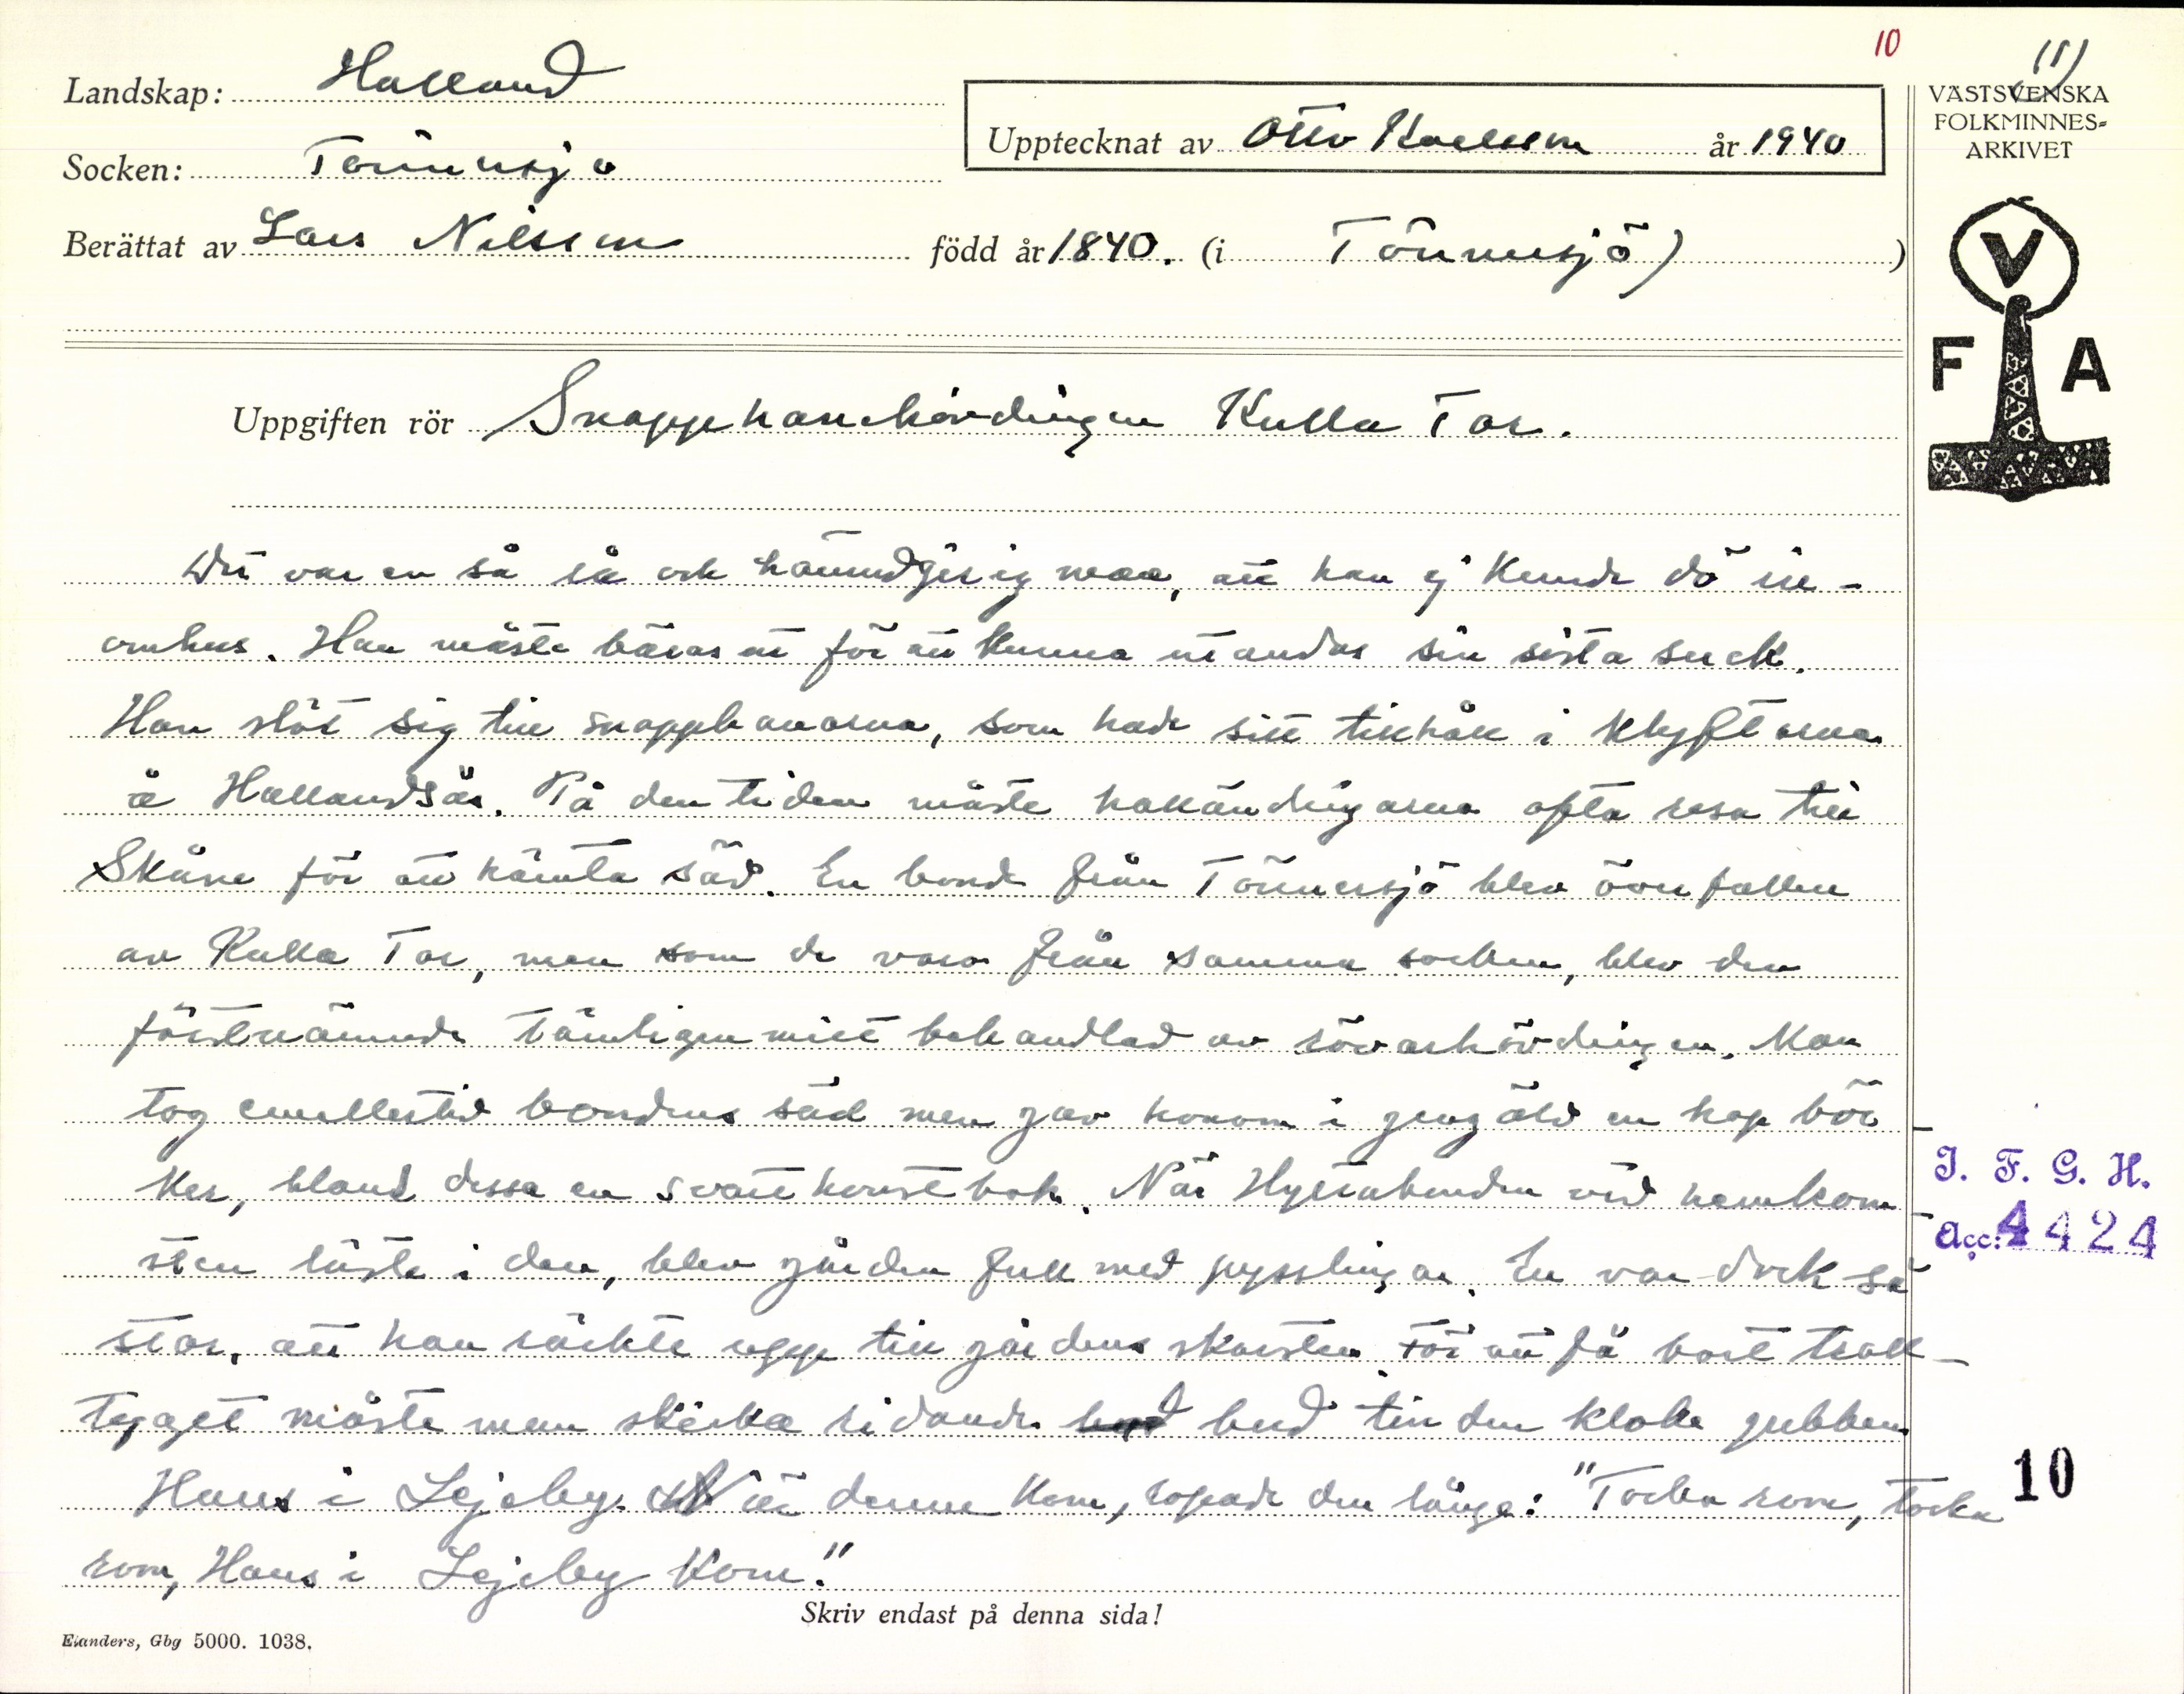 10
(1)
Landskap: Halland
Upptecknat av Otto Karlsson år 1940
VÄSTSVENSKA
FOLKMINNES-
ARKIVET
Socken: Tönnersjö
Berättat av Lars Nilsson född år 1840. (i Tönnersjö) )
V
F A
Uppgiften rör Snapphanehövdingen Kulla Tor.
Det var en så rå och hämndgirig man, att han ej kunde dö in-
omhus. Han måste bäras ut för att kunna utandas sin sista suck.
Han slöt sig till snapphanarna, som hade sitt tillhåll i klyftorna
å Hallandsås. På den tiden måste hallänningarna ofta resa till
Skåne för att hämta säd. En bonde från Tönnersjö blev överfallen
av Kulla Tor, men som de voro från samma socken, blev den
förstnämnde tämligen milt behandlad av rövarhövdingen. Man
tog emellertid bondens säd men gav honom i gengäld en hop böc
ker, bland dessa en svartkonstbok. När bonden vid hemkom
sten läste i den, blev gården full med pysslingar. En var dock så
stor, att han räckte upp till gårdens skorsten. För att få bort troll-
tyget måste man skicka ridande bud till den kloke gubben
Hans i Lejeby. När denne kom, ropade den långe: "Tocka rom, tocka
rom, Hans i Lejeby kom."
I. F. G. H.
Acc: 4424
10
Skriv endast på denna sida!
Elanders, Gbg 5000. 1038.